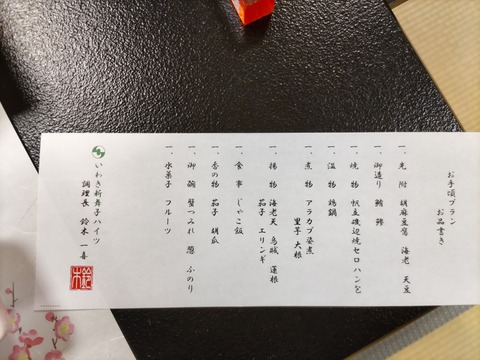 お手頃プラン
お品書き
一、先 附 胡麻豆腐 海老 天豆
一、御造り 鮪 鰤
一、焼 物 帆立磯辺焼セロハン包
一、温 物 鶏鍋
一、煮 物 アラカブ姿煮
里芋 大根
一、揚 物 海老天 烏賊 蓮根
茄子 エリンギ
一、食 事 じゃこ飯
一、香の物 茄子 胡瓜
一、御 椀 蟹つみれ 葱 ふのり
一、水菓子 フルーツ
いわき新舞子ハイツ
調理長 鈴木 一喜
鈴木